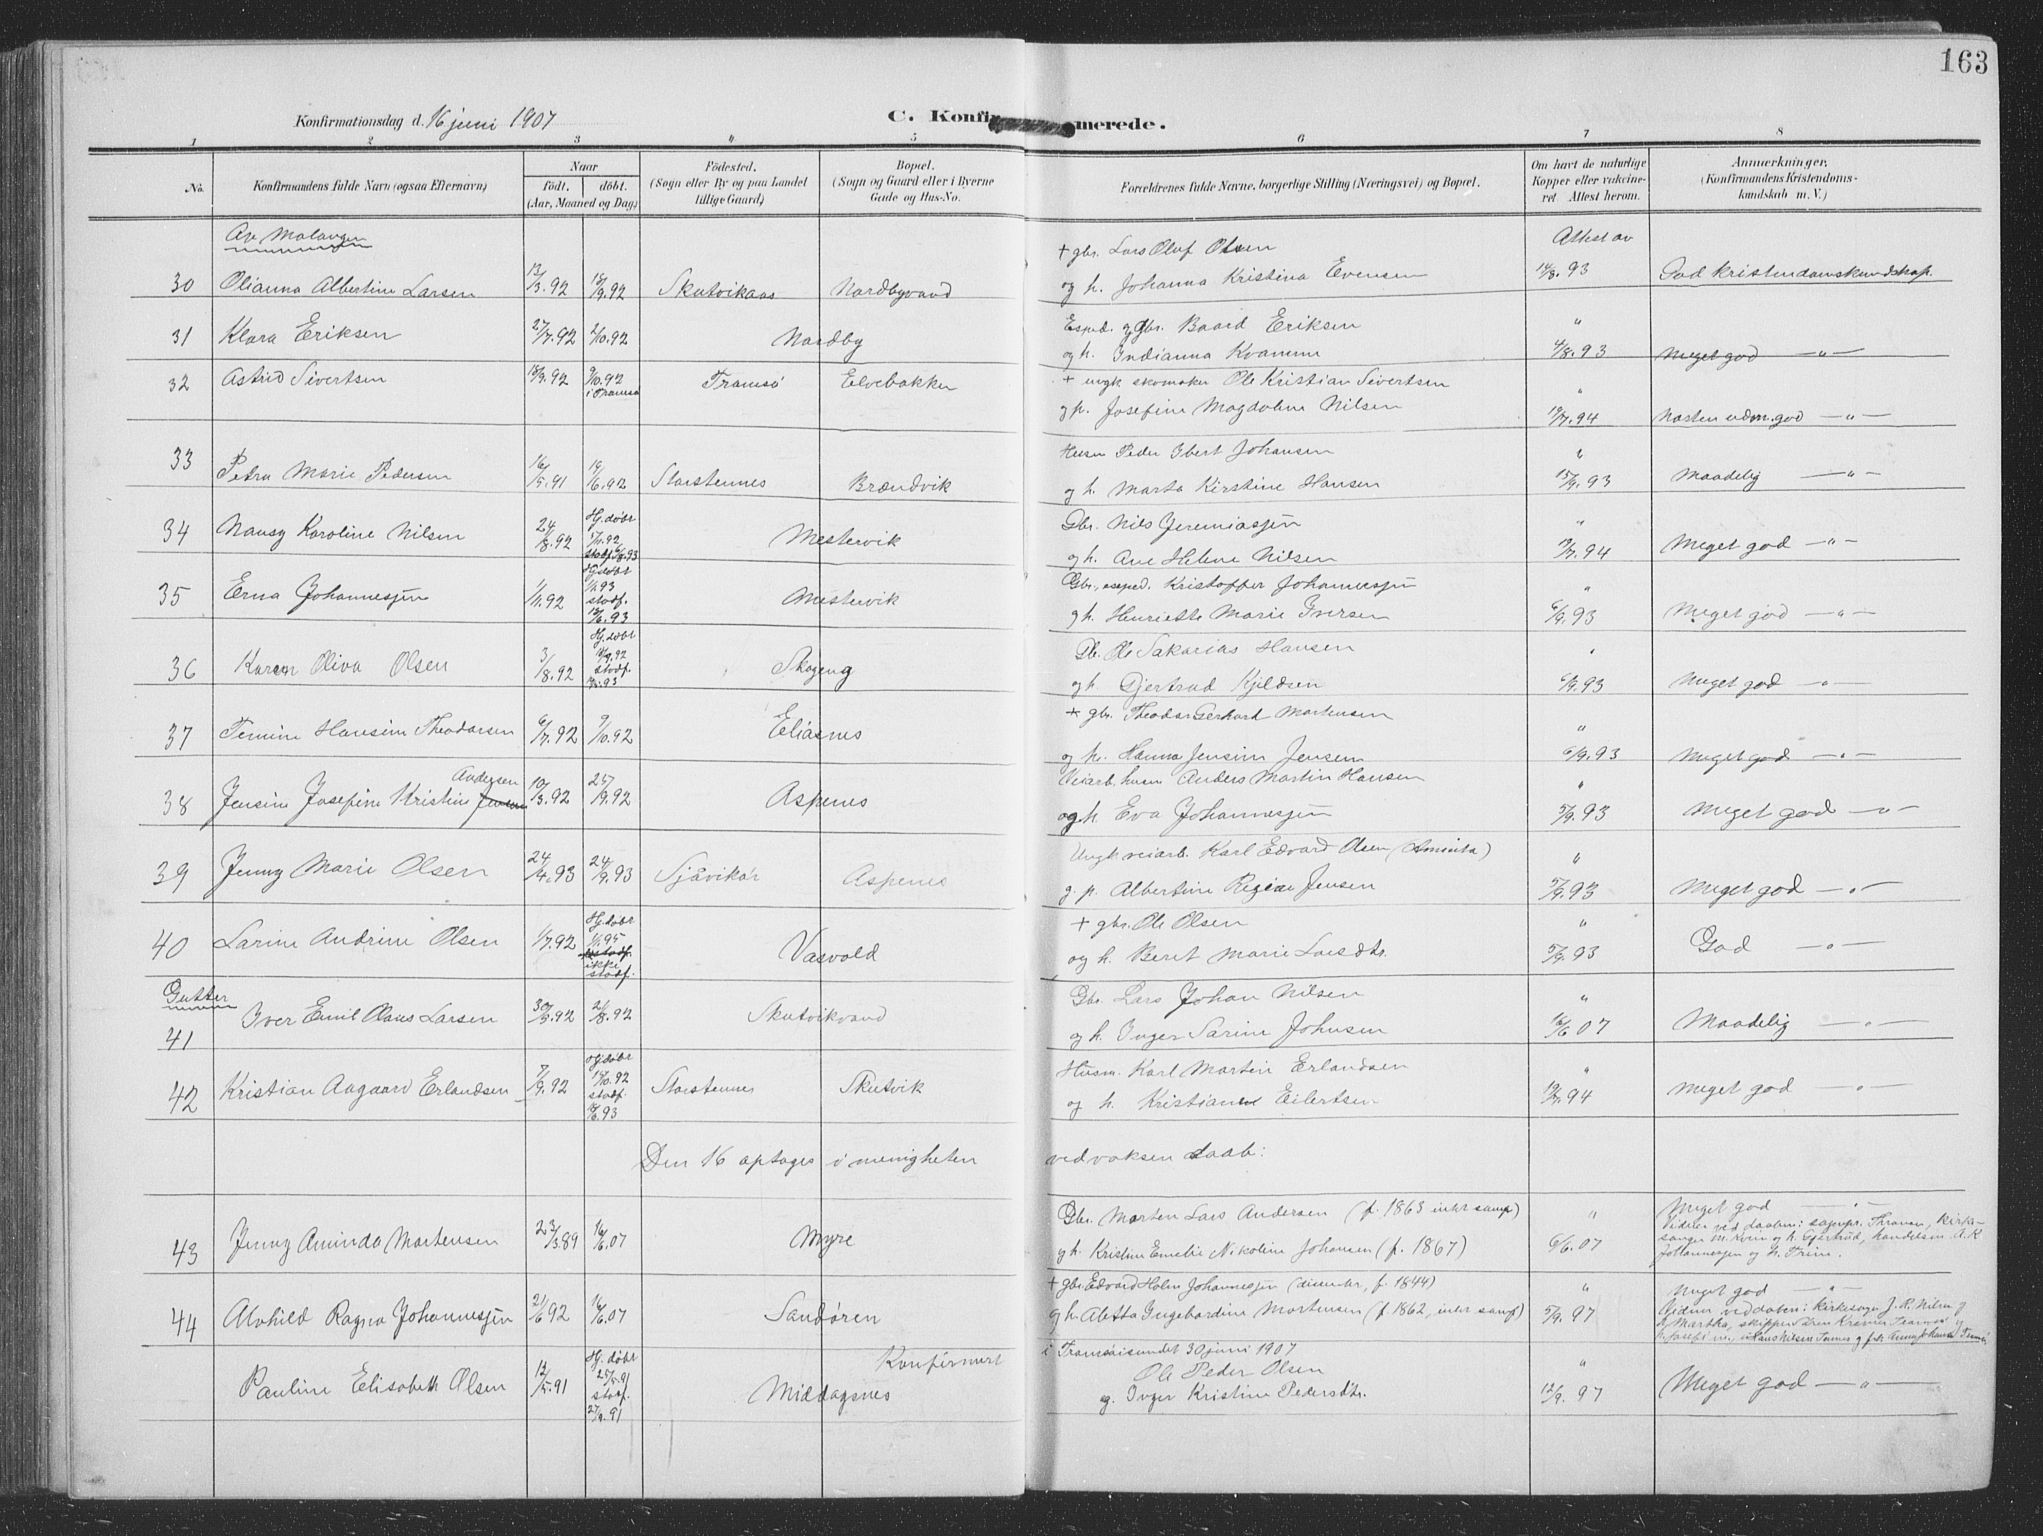 163
Konfirmationsdag d. 16 juni 1907
C. Konfir merede.
1 2 3 4 5 6 7 8
No.
Konfirmandens fulde Navn (ogsaa Efternavn)
Naar
födt. döbt.
(Aar, Maaned og Dag)
Födested.
(Sogn eller By og paa Landet
tillige Gaard)
Bopæl.
(Sogn og Gaard eller i Byerne
Gade og Hus-No.
Forældrenes fulde Navne, borgerlige Stilling (Næringsvei) og Bopæl.
Om havt de naturlige
Kopper eller vakcine-
ret Attest herom.
Anmerkninger.
(Konfirmandens Kristendoms-
kundskab m. V.)
Av Malangen
30 Olianna Albertine Larsen 13/3.92 18/9.92 Skutvikaas Nordbyvand
+ gbr. Lars Olaf Olsen Attest av
og h. Johanna Kristina Evensen 14/8.93 God kristendomskundskap.
31 Klara Eriksen 27/7.92 2/10.92 Nordby
Esped. og gbr. Baard Eriksen "
og h. Indianna Kvamme 4/8.93 Meget god —"—
32 Astrid Sivertsen 18/9.92 9/10.92 i Tromsø Tromsø Elvebakken
+ ungk skomaker Ole Kristian Sivertsen "
og p. Josefine Magdalene Nilsen 19/7.94 Næsten udm. god —"—
33 Petra Marie Pedersen 16/5.91 19/6.92 Storstennes Brændvik
Husm Peder Ibert Johansen "
og h. Marta Kirstine Hansen 15/9.93 Maadelig —"—
34 Nansy Karoline Nilsen 24/8.92 Hj. døbt /11.92 stadf. /8.93 Mestervik
Gbr. Nils Jeremiassen "
og h. Ane Helene Nilsen 19/7.94 Meget god —"—
35 Erna Johannesen 1/11.92 Hj. døbt 1/1.93 stadf. 18/6.93 Mestervik
Gbr., esped. Kristoffer Johannessen "
og h. Henriette Marie Iversen 6/9.93 Meget god —"—
36 Karen Oliva Olsen 3/8.92 Hj. døbt 18/9.92 stadf. .93 Skogeng
Gb. Ole Sakarias Hansen "
og h. Gjertrud Kjeldsen 6/9.93 Meget god —"—
37 Temine Hansine Theodorsen 6/7.92 9/10.92 Eliasnes
+ gbr. Theodor Gerhard Mortensen "
og h. Hanna Jensine Jensen 6/9.93 Meget god —"—
38 Jensine Josefine Kristine Jensen Andersen 10/3.92 25/9.92 Aspenes
Veiarb. husm Anders Martin Hansen "
og h. Eva Johannessen 5/9.93 Meget god —"—
39 Jenny Marie Olsen 24/4.93 24/9.93 Sjåvikør Aspenes
Ungk veiarb. Karl Edvard Olsen (Aminta) "
g. p. Albertine Regine Jensen 5/9.93 Meget god —"—
40 Larine Andrine Olsen 1/7.92 Hj. døbt 1/1.95 stadf. ikke stadf. Vasvold
+ gbr. Ole Olsen "
og h. Beret Marie Larsdtr. 5/9.93 God —"—
Gutter
41 Iver Emil Olaus Larsen 30/5.92 21/8.92 Skutvikvand
Gbr. Lars Johan Nilsen "
og h. Inger Sarine Johnsen 16/6.07 Maadelig —"—
42 Kristian Aagaard Erlandsen 7/9.92 Hj. døbt 18/10.92 stadf. 18/6.93 Storstennes Skutvik
Husm. Karl Martin Erlandsen "
og h. Kristiane Eilertsen 19/7.94 Meget god —"—
Den 16 optages i menigheten ved voksen daab:
43 Jenny Aminda Mortensen 23/3.89 16/6.07 Myre
Gbr. Morten Lars Andersen (f. 1863 inkt samf) "
og h. Kristine Emelie Nikoline Johansen (f. 1867) 6/6.07
Meget god —"—
Vidner ved daaben: sognepr. Thranan, kirke-
sanger M. Kvien og h. Gjertrud, handelsm A. K
Johannesen og h. Trine.
44 Alvhild Ragna Johannesen 21/6 92 16/6.07 Sandøren
+ gbr Edvard Holm Johannessen (dissenter, f. 1844) "
og h. Aletta Ingebordine Mortensen (f 1862, inkt samf) 5/9.97
Meget god —"—
Vidner ved daaben: Kirkesogn J. R. Nilsen og
h. Martha, skipper Tromsø og
Konfirmert i Tromsøisundet 30 juni 1907
Pauline Elisabeth Olsen 12/5.91 Hj. døbt 25/5.91 stadf. 27/9.91 Middagsnes
Ole Peder Olsen "
og Inger Kristine Pedersdtr. 12/9.97 Meget god —"—